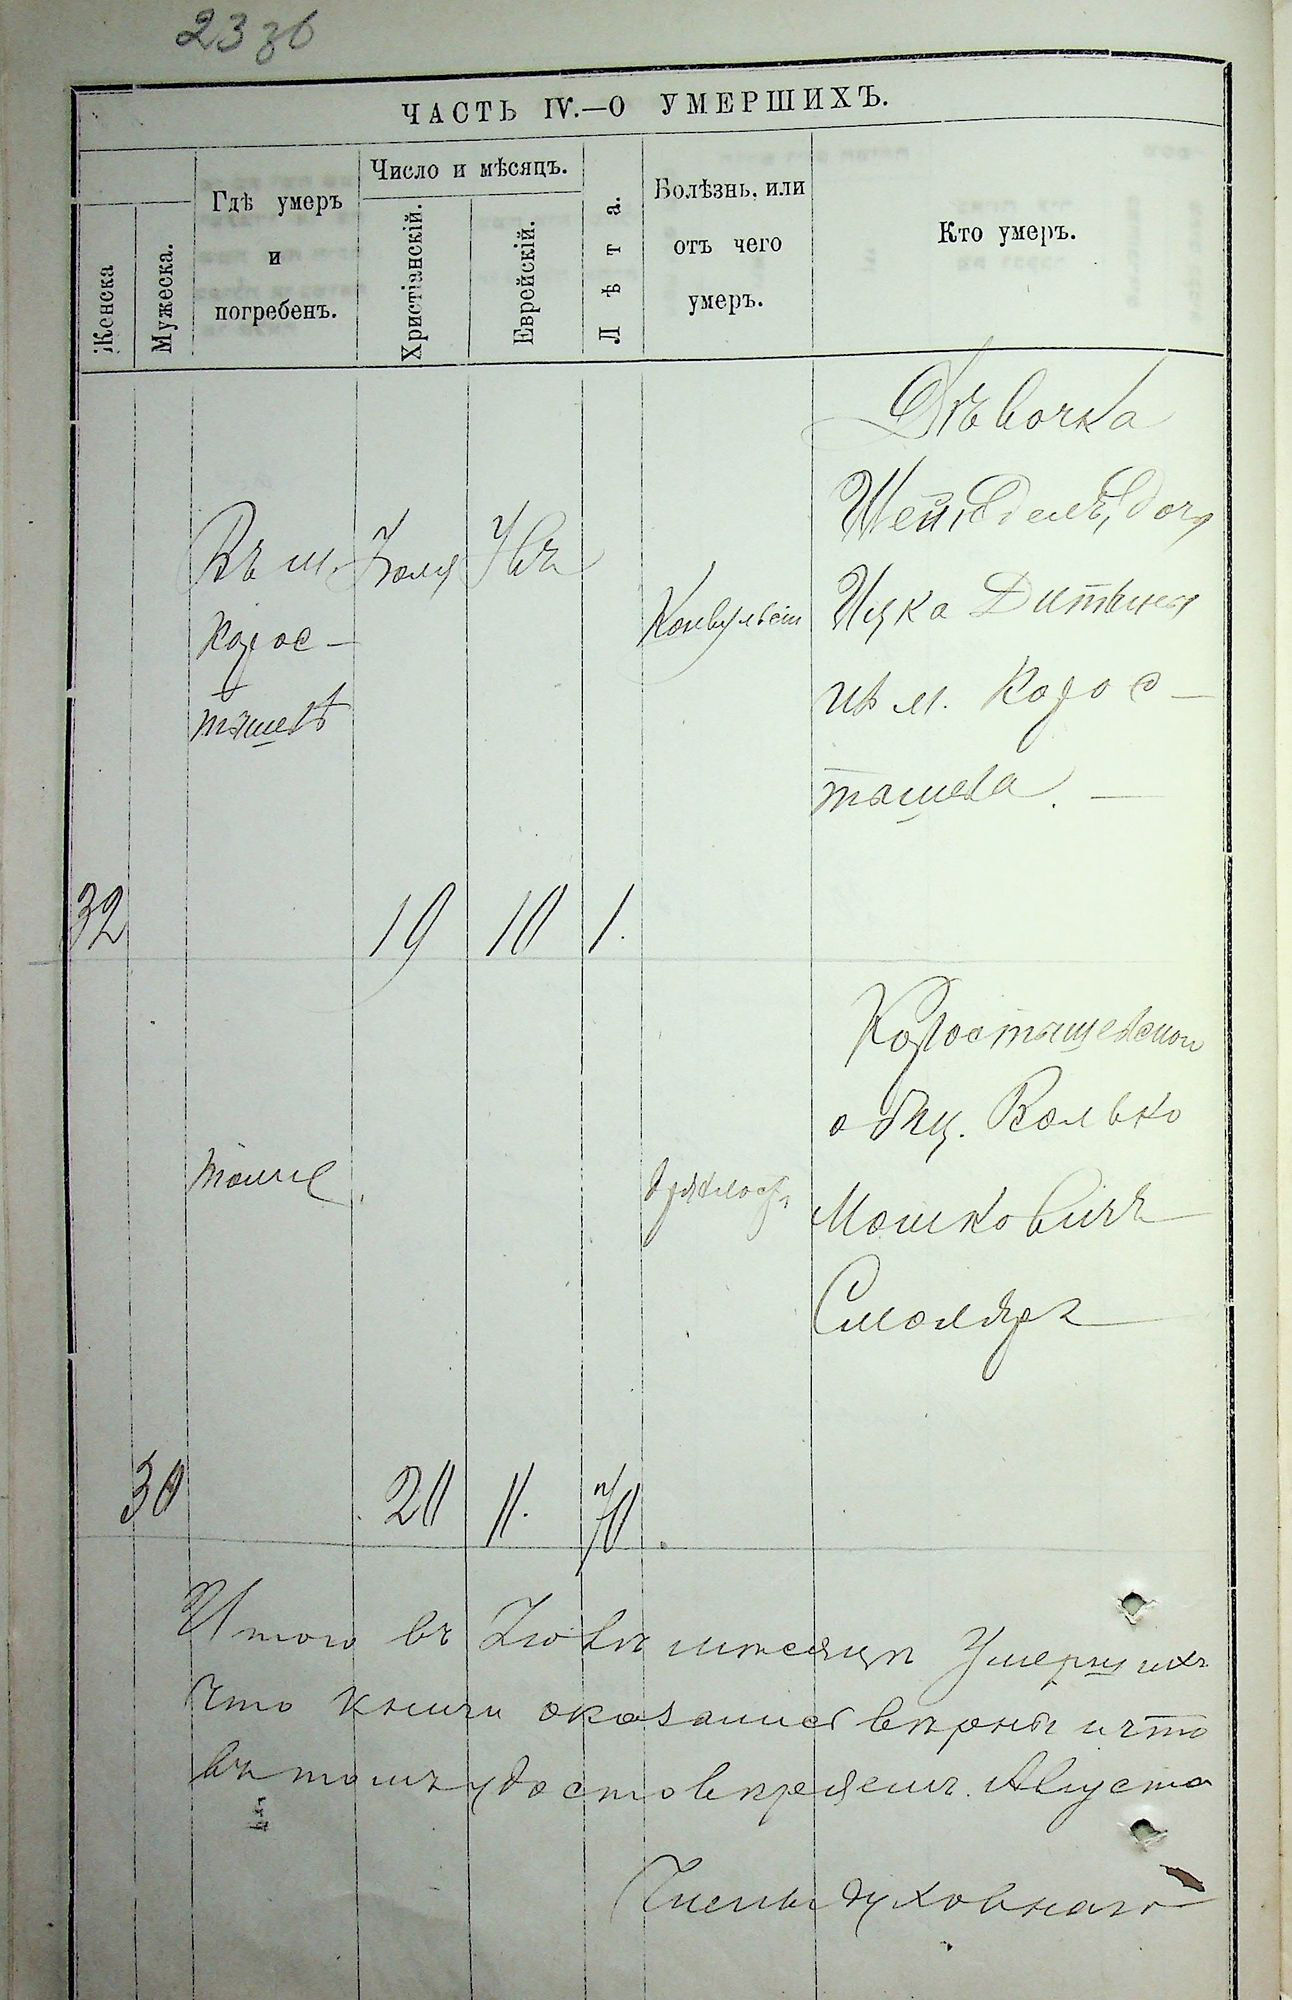 23 зб
ЧАСТЬ IV.—О УМЕРШИХЪ.
Женска
Мужеска.
Гдѣ умеръ
и
погребенъ.
Число и мѣсяцъ.
Христіанскій.
Еврейскій.
Лѣта.
Болѣзнь, или
отъ чего
умеръ.
Кто умеръ.
32
Въ м.
Корос-
тышевѣ
Іюля
19
Увъ
10
1.
Конвульсіи
Дѣвочка
Шейндель, дочь
Ицка
из м. Корос-
тышева. —
30
тоже
20
11.
70
дряхлость
Коростышевскій
общ. Волько
Мошковичъ
Смоляръ
Итого въ Іюлѣ мѣсяцѣ Умершихъ
что книги оказались вѣрны и что
въ томъ удостовѣряемъ. Августа
Члены духовнаго